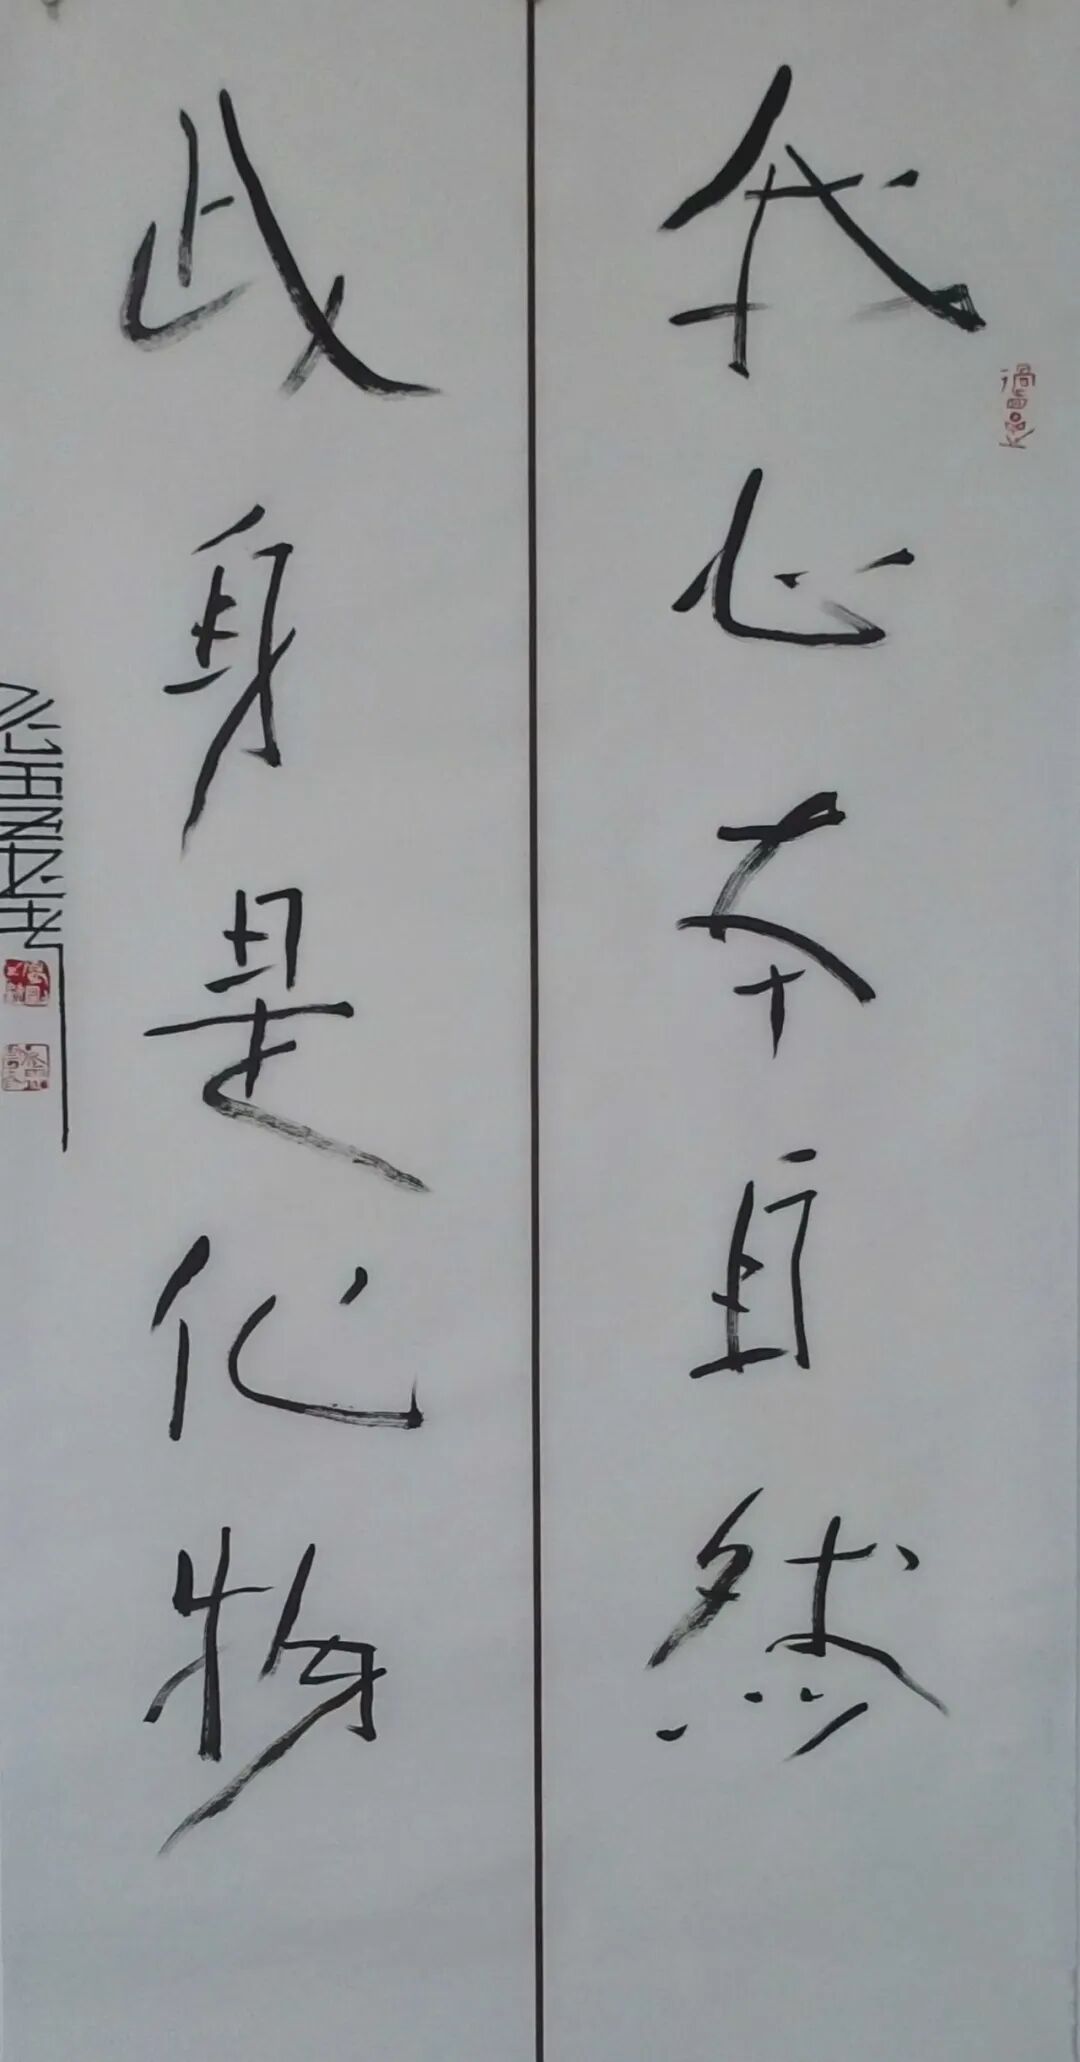 我心本自然
此身是化物